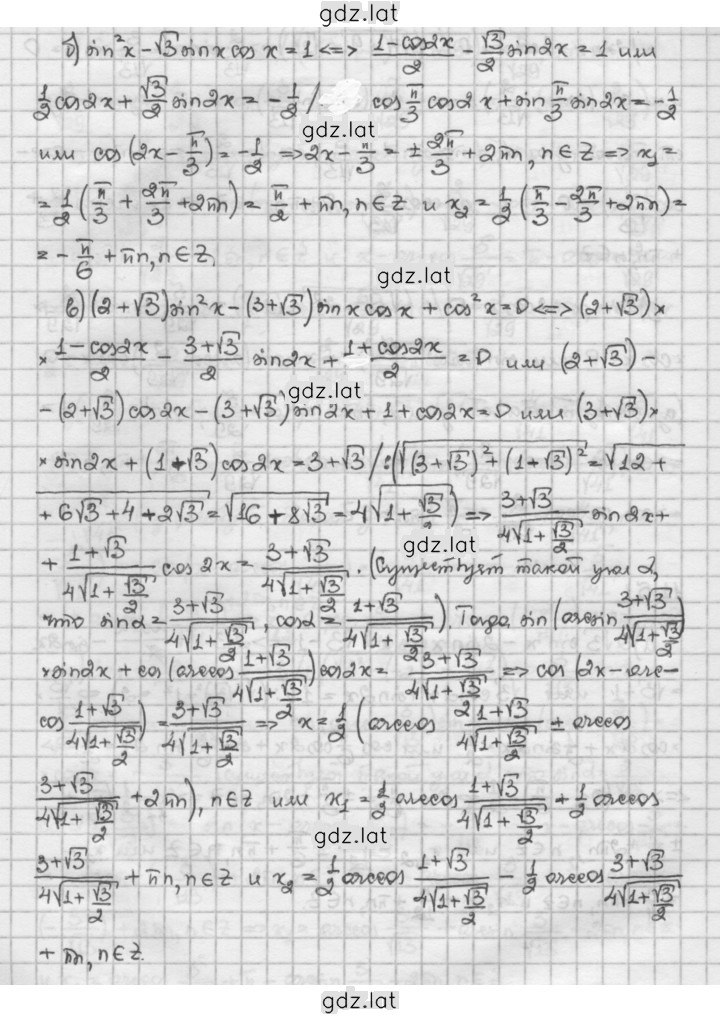 gdz.lat
б) sin²x − √3 sinx cos x = 1 <=> (1−cos2x)/2 − √3/2 sin2x = 1 или
1/2 cos2x + √3/2 sin2x = −1/2 / cos π/3 cos2x + sin π/3 sin2x = −1/2
gdz.lat
или cos(2x − π/3) = −1/2 => 2x − π/3 = ± 2π/3 + 2πn, n∈Z => x₁ =
= 1/2 (π/3 + 2π/3 + 2πn) = π/2 + πn, n∈Z и x₂ = 1/2 (π/3 − 2π/3 + 2πn) =
= − π/6 + πn, n∈Z.
gdz.lat
в) (2+√3) sin²x − (3+√3) sinx cosx + cos²x = 0 <=> (2+√3) ×
× (1−cos2x)/2 − (3+√3)/2 sin2x + (1+cos2x)/2 = 0 или (2+√3) −
gdz.lat
− (2+√3) cos2x − (3+√3) sin2x + 1 + cos2x = 0 или (3+√3) ×
× sin2x + (1+√3) cos2x = 3+√3 / :(√((3+√3)² + (1+√3)²) = √(12 +
+ 6√3 + 4 + 2√3) = √(16 + 8√3) = 4√(1 + √3/2)) => (3+√3)/(4√(1+√3/2)) sin2x +
gdz.lat
+ (1+√3)/(4√(1+√3/2)) cos2x = (3+√3)/(4√(1+√3/2)). (Существует такой угол α,
что sinα = (3+√3)/(4√(1+√3/2)), cosα = (1+√3)/(4√(1+√3/2))). Тогда, sin(arcsin (3+√3)/(4√(1+√3/2))
× sin2x + cos(arccos (1+√3)/(4√(1+√3/2))) cos2x = (3+√3)/(4√(1+√3/2)). => cos(2x − arc-
cos (1+√3)/(4√(1+√3/2))) = (3+√3)/(4√(1+√3/2)) => x = 1/2 (arccos (1+√3)/(4√(1+√3/2)) ± arccos
(3+√3)/(4√(1+√3/2)) + 2πn), n∈Z или x₁ = 1/2 arccos (1+√3)/(4√(1+√3/2)) + 1/2 arccos
gdz.lat
(3+√3)/(4√(1+√3/2)) + πn, n∈Z и x₂ = 1/2 arccos (1+√3)/(4√(1+√3/2)) − 1/2 arccos (3+√3)/(4√(1+√3/2))
+ πn, n∈Z.
gdz.lat